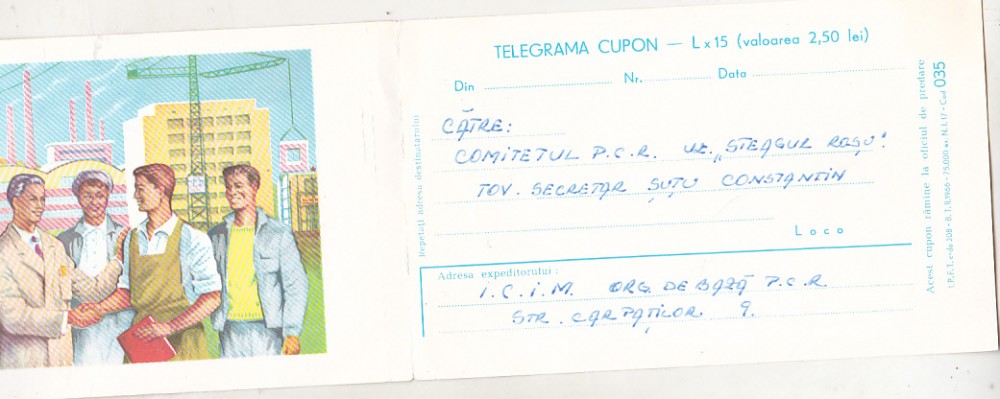 TELEGRAMA CUPON — Lx15 (valoarea 2,50 lei)
Din Nr. Data
CĂTRE:
COMITETUL P.C.R. UZ. „STEAGUL ROȘU".
TOV. SECRETAR ȘUȚU CONSTANTIN
Loco
Adresa expeditorului:
I.C.I.M. ORG. DE BAZĂ P.C.R.
STR. CARPAȚILOR 9.
Repetați adresa destinatarului
Acest cupon rămîne la oficiul de predare
I.P.F.I. c-da 208 - B.T. 83966 - 75.000 ex. N.I. 17 - Cod 035